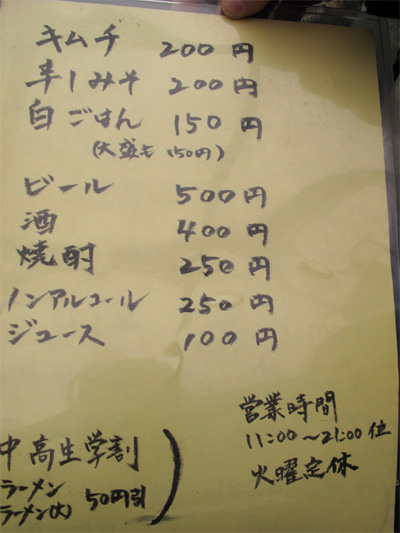 キムチ 200円
辛みそ 200円
白ごはん 150円
(大盛も150円)
ビール 500円
酒 400円
焼酎 250円
ノンアルコール 250円
ジュース 100円
営業時間
11:00～21:00位
火曜定休
中高生学割
ラーメン
ラーメン(大) 50円引